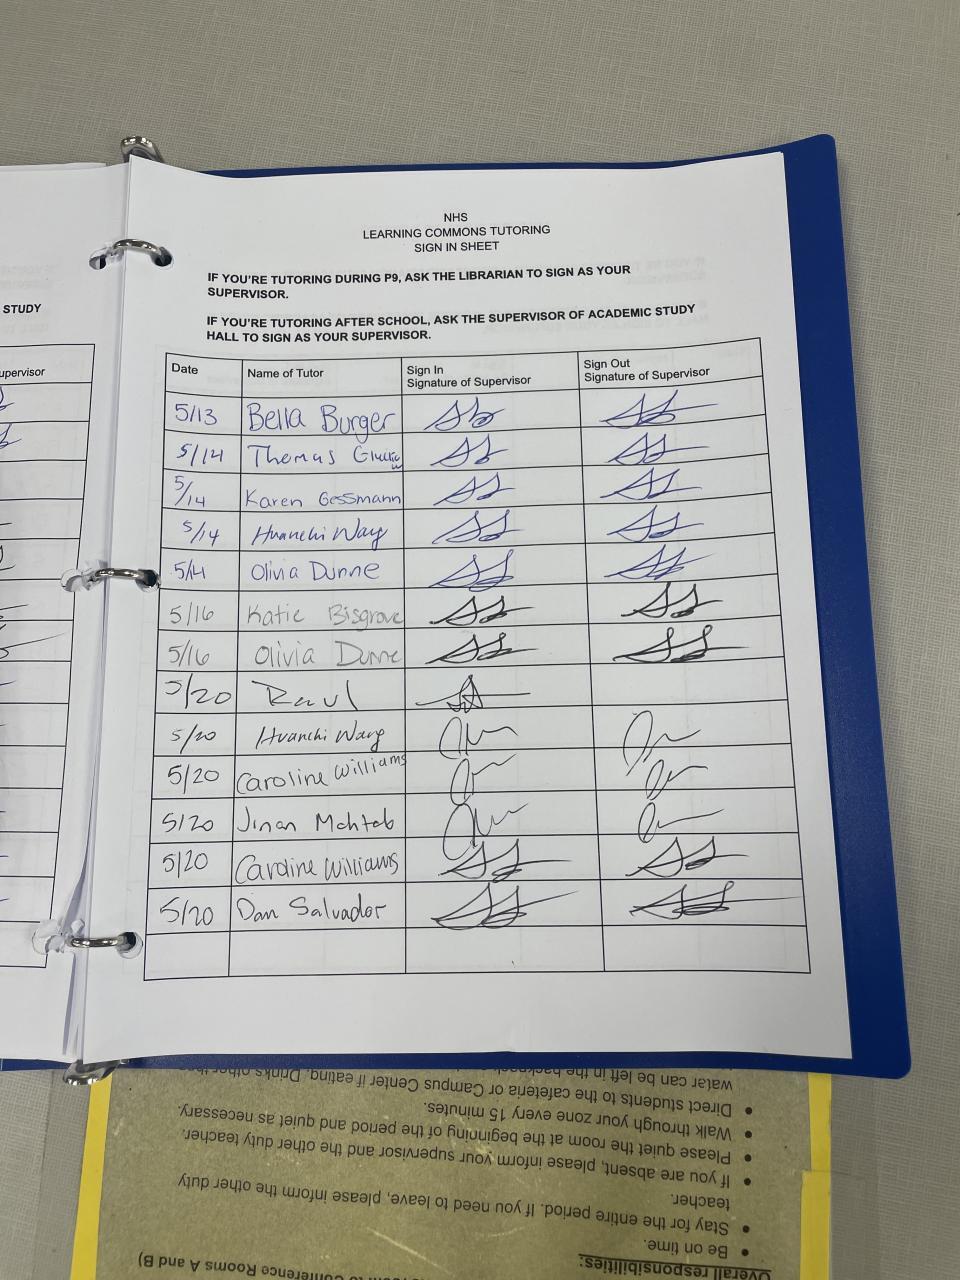 STUDY
upervisor
NHS
LEARNING COMMONS TUTORING
SIGN IN SHEET
IF YOU'RE TUTORING DURING P9, ASK THE LIBRARIAN TO SIGN AS YOUR
SUPERVISOR.
IF YOU'RE TUTORING AFTER SCHOOL, ASK THE SUPERVISOR OF ACADEMIC STUDY
HALL TO SIGN AS YOUR SUPERVISOR.
Date Name of Tutor Sign In Signature of Supervisor Sign Out Signature of Supervisor
5/13 Bella Burger
5/14 Thomas
5/14 Karen Gessmann
5/14 Huanchi Wang
5/14 Olivia Dunne
5/16 Katie Bisgrove
5/16 Olivia Dunne
5/20 Raul
5/20 Huanchi Wang
5/20 Caroline Williams
5/20 Jinan Mahtab
5/20 Caroline Williams
5/20 Dan Salvador
Overall responsibilities:
• Be on time.
• Stay for the entire period. If you need to leave, please inform the other duty
teacher.
• If you are absent, please inform your supervisor and the other duty teacher.
• Please quiet the room at the beginning of the period and quiet as necessary.
• Walk through your zone every 15 minutes.
• Direct students to the cafeteria or Campus Center if eating. Drinks other than
water can be left in the
Rooms A and B)